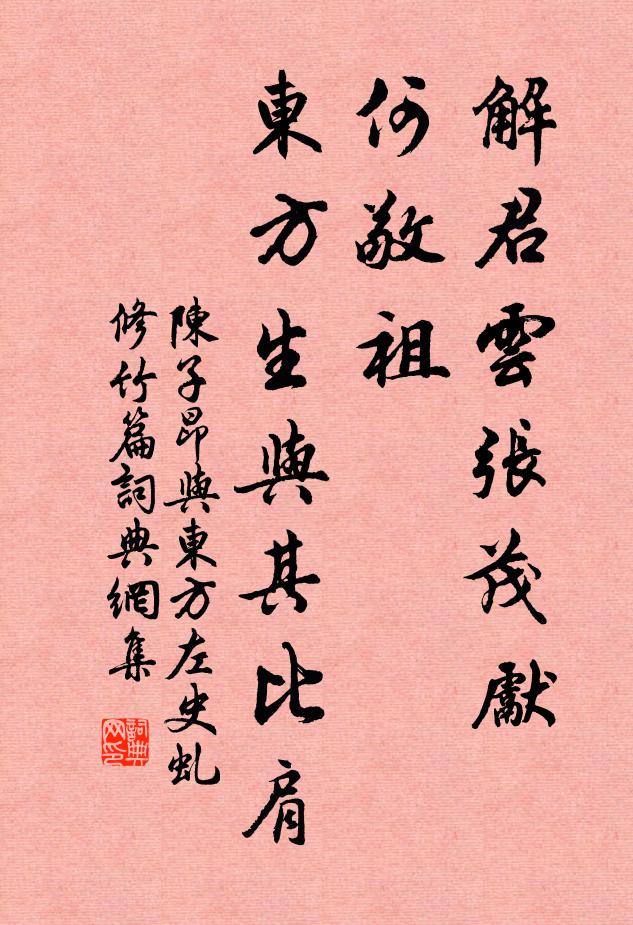 解君雲張茂獻
何敬祖
東方生與其比肩
陳子昂與東方左史虬
修竹篇詞典網集
詞典网印